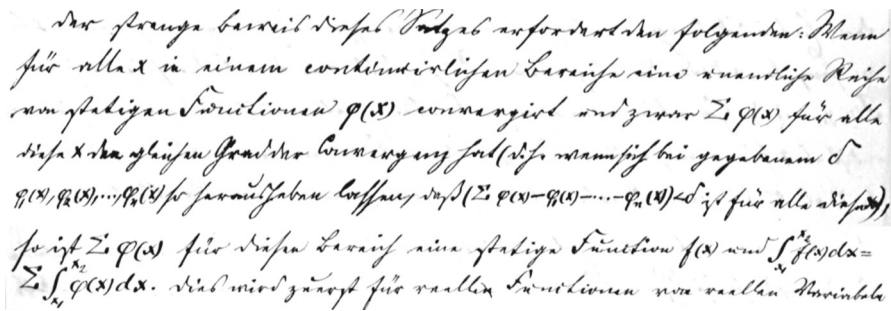 Der strenge Beweis dieses Satzes erfordert den folgenden: Wenn
für alle x in einem continuirlichen Bereiche eine unendliche Reihe
von stetigen Functionen φ(x) convergirt und zwar Σ φ(x) für alle
diese x den gleichen Grad der Convergenz hat (d.h. wenn sich bei gegebenem δ
φ₁(x), φ₂(x), ..., φₙ(x) so herausheben lassen, daß (Σ φ(x)−φ₁(x)−...−φₙ(x))<δ ist für alle diese x),
so ist Σ φ(x) für diesen Bereich eine stetige Function f(x) und ∫ₓ₁ˣ² f(x)dx=
Σ ∫ₓ₁ˣ² φ(x)dx. Dies wird zuerst für reelle Functionen von reellen Variabeln